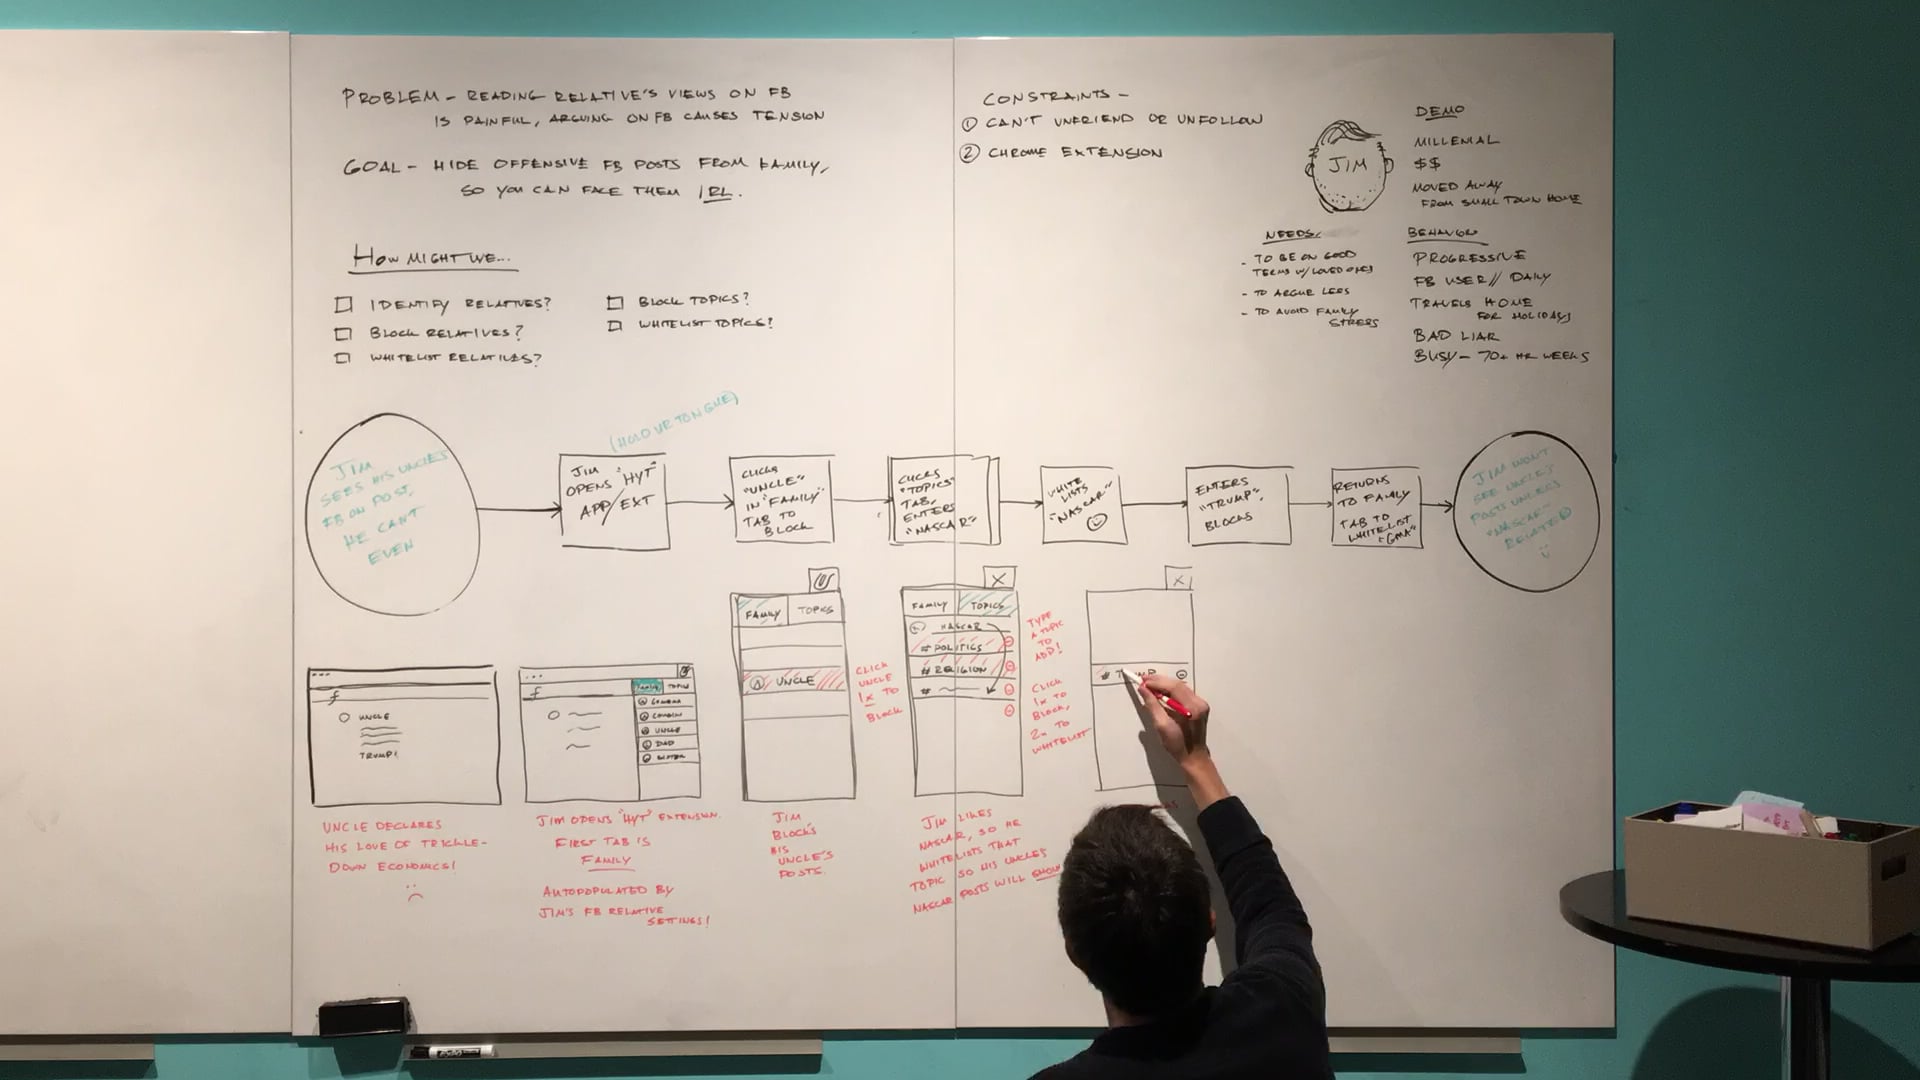 PROBLEM - READING RELATIVE'S VIEWS ON FB
IS PAINFUL, ARGUING ON FB CAUSES TENSION
GOAL - HIDE OFFENSIVE FB POSTS FROM FAMILY,
SO YOU CAN FACE THEM IRL.
HOW MIGHT WE...
IDENTIFY RELATIVES?
BLOCK RELATIVES?
WHITELIST RELATIVES?
BLOCK TOPICS?
WHITELIST TOPICS?
CONSTRAINTS -
① CAN'T UNFRIEND OR UNFOLLOW
② CHROME EXTENSION
JIM
DEMO
MILLENIAL
$$
MOVED AWAY
FROM SMALL TOWN HOME
NEEDS
- TO BE ON GOOD
TERMS W/ LOVED ONES
- TO ARGUE LESS
- TO AVOID FAMILY
STRESS
BEHAVIOR
PROGRESSIVE
FB USER // DAILY
TRAVELS HOME
FOR HOLIDAYS
BAD LIAR
BUSY - 70+ HR WEEKS
JIM
SEES HIS UNCLE'S
FB ON POST.
HE CAN'T
EVEN
(HOLD UR TONGUE)
JIM
OPENS "HYT"
APP/EXT
CLICKS
"UNCLE"
IN "FAMILY"
TAB TO
BLOCK
CLICKS
"TOPICS"
TAB,
ENTERS
"NASCAR"
WHITE
LISTS
"NASCAR"
ENTERS
"TRUMP",
BLOCKS
RETURNS
TO FAMILY
TAB TO
WHITELIST
"GMA"
JIM WON'T
SEE UNCLE'S
POSTS UNLESS
"NASCAR"-
RELATED
f
UNCLE
TRUMP!
UNCLE DECLARES
HIS LOVE OF TRICKLE-
DOWN ECONOMICS!
f
FAMILY TOPICS
GRANDMA
COUSIN
UNCLE
DAD
SISTER
JIM OPENS "HYT" EXTENSION.
FIRST TAB IS
FAMILY
AUTOPOPULATED BY
JIM'S FB RELATIVE
SETTINGS!
FAMILY TOPICS
UNCLE
CLICK
UNCLE
1x TO
BLOCK
JIM
BLOCK'S
HIS
UNCLE'S
POSTS.
X
FAMILY TOPICS
NASCAR
# POLITICS
# RELIGION
#
TYPE
A TOPIC
TO
ADD!
CLICK
1x TO
BLOCK,
2x TO
WHITELIST
JIM LIKES
NASCAR, SO HE
WHITELISTS THAT
TOPIC SO HIS UNCLES
NASCAR POSTS WILL SHOW
X
#
EXPO